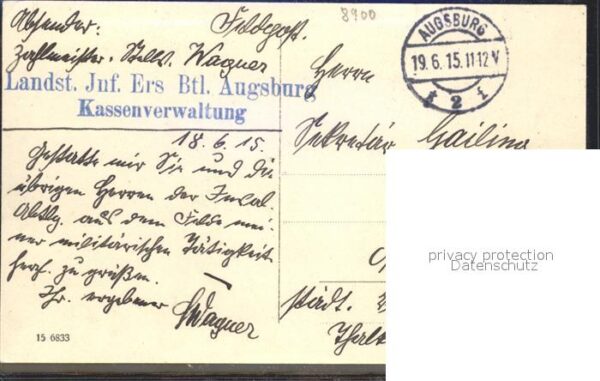 Absender: Feldpost.
8900
Zahlmeister-Stellv. Wagner
Landst. Inf. Ers Btl. Augsburg
Kassenverwaltung
AUGSBURG
19.6.15.11-12V
* 2 *
Herrn
Sekretär Gailing
18.6.15.
Gestatte mir Sie und die
übrigen Herren der
Abtlg. aus dem Felde mei-
ner militärischen Tätigkeit
herzl. zu grüßen.
Ihr ergebener
Wagner
städt.
15 6833
privacy protection
Datenschutz